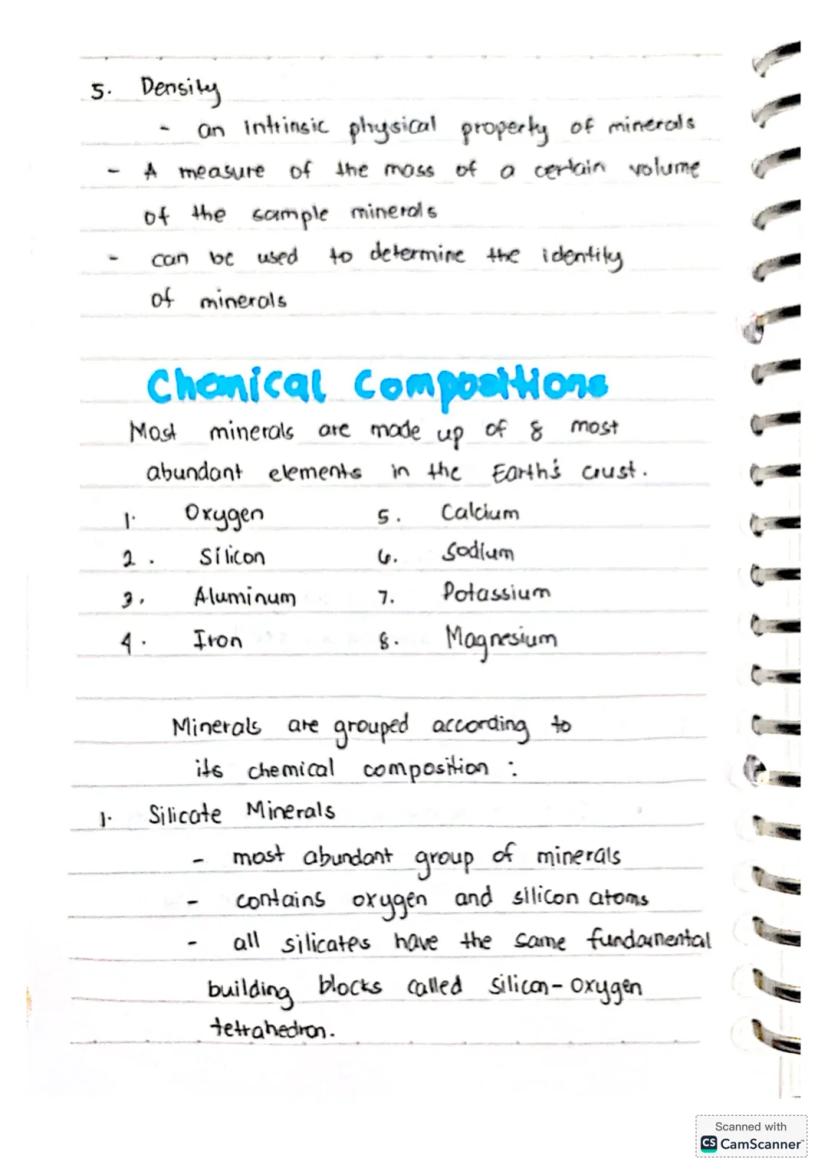 5. Density
- an intrinsic physical property of minerals
- A measure of the mass of a certain volume
of the sample minerals
- can be used to determine the identity
of minerals
Chemical Compositions
Most minerals are made up of 8 most
abundant elements in the Earth's crust.
1. Oxygen 5. Calcium
2. Silicon 6. Sodium
3. Aluminum 7. Potassium
4. Iron 8. Magnesium
Minerals are grouped according to
its chemical composition :
1. Silicate Minerals
- most abundant group of minerals
- contains oxygen and silicon atoms
- all silicates have the same fundamental
building blocks called silicon-oxygen
tetrahedron.
Scanned with
CS CamScanner